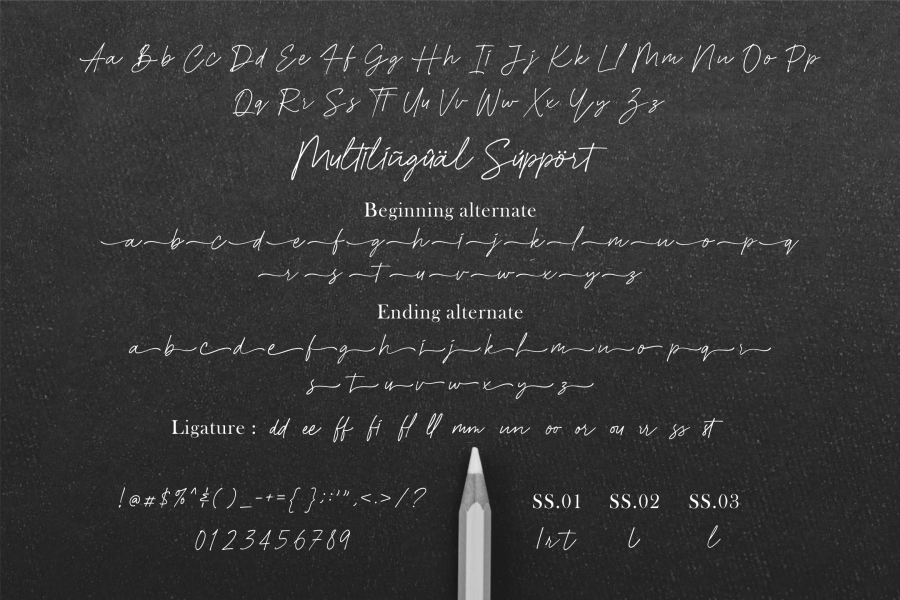 Aa Bb Cc Dd Ee Ff Gg Hh Ii Jj Kk Ll Mm Nn Oo Pp
Qq Rr Ss Tt Uu Vv Ww Xx Yy Zz
Multilíñgûäl Súppört
Beginning alternate
a b c d e f g h i j k l m n o p q
r s t u v w x y z
Ending alternate
a b c d e f g h i j k l m n o p q r
s t u v w x y z
Ligature : dd ee ff fi fl ll mm nn oo or ou rr ss st
!@#$%^&( )_-+={ };:'",<.>/?
0123456789
SS.01 SS.02 SS.03
lrt l l